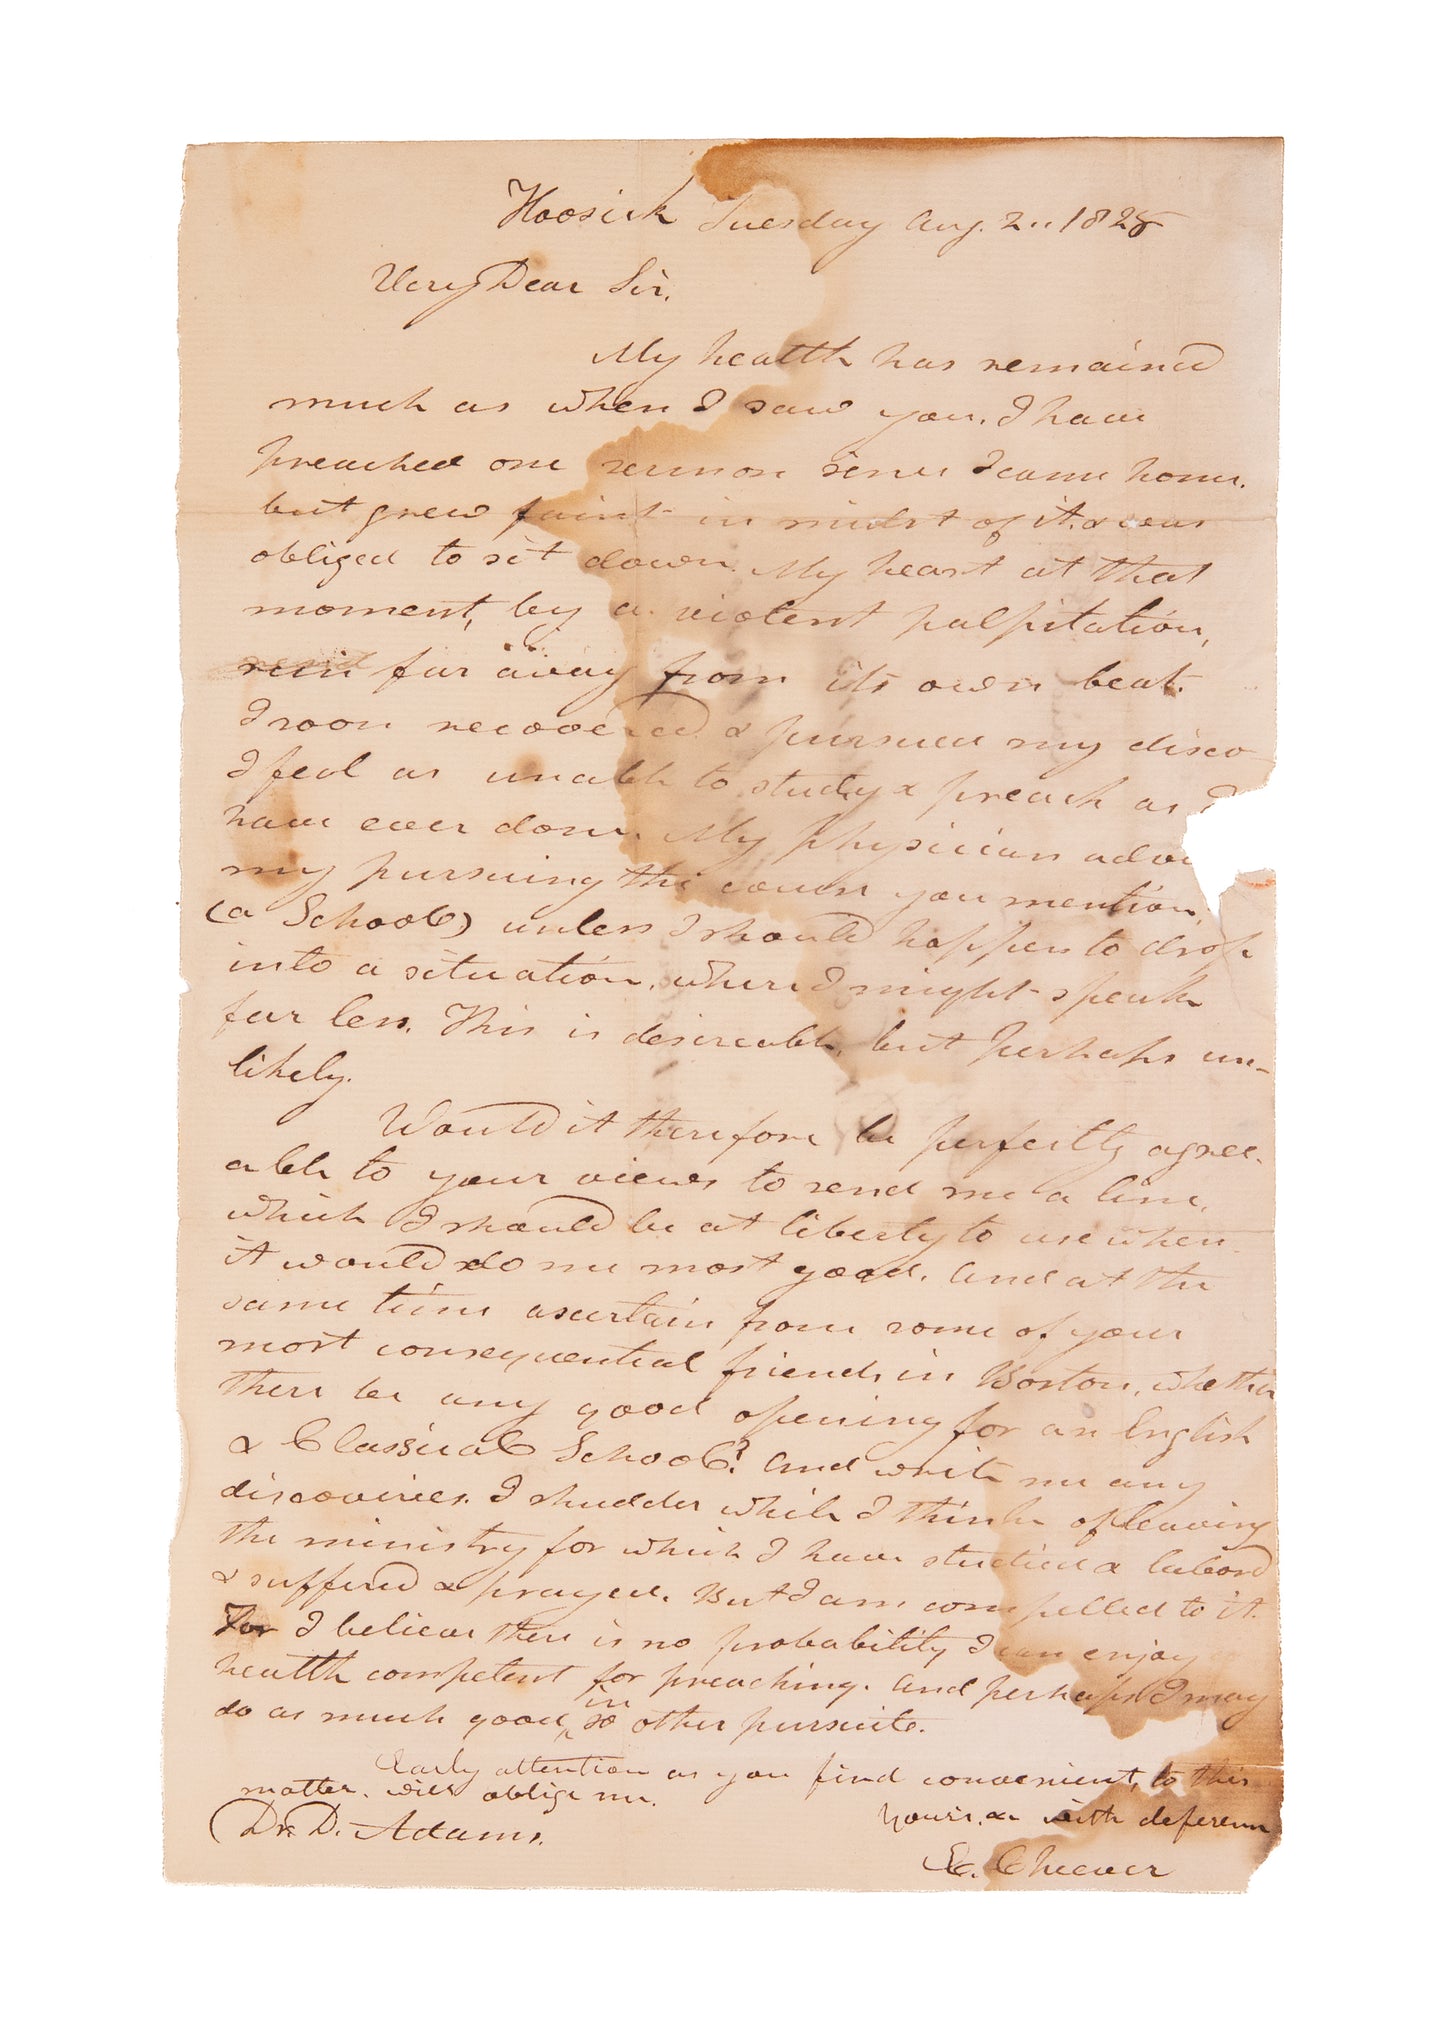 Hoosick Tuesday Aug. 2.. 1825
Very Dear Sir.
My health has remained
much as when I saw you. I have
preached one sermon since I came home.
but grew faint in midst of it. & was
obliged to sit down. My heart at that
moment, by a violent palpitation,
far away from its own beat.
I soon recovered & pursued my disco
I feel as unable to study & preach as I
have ever done. My physician
my pursuing the course you mention,
(a School) unless I should happen to drop
into a situation, where I might speak
far less. This is desireable, but perhaps un-
likely.
Would it therefore be perfectly agree-
able to your views to send me a line,
which I should be at liberty to use when
it would do me most good. And at the
same time ascertain from some of your
most consequential friends in Boston, whether
there be any good opening for an English
& Classical School? And write me any
discoveries. I shudder while I think of leaving
the ministry for which I have studied & labord
& suffered & prayed. But I am compelled to it.
For I believe there is no probability I can enjoy
health competent for preaching. And perhaps I may
do as much good in other pursuits.
Early attention as you find convenient, to this
matter, will oblige me.
Yours, & with deference
Dr. D. Adams.
E. Cheever